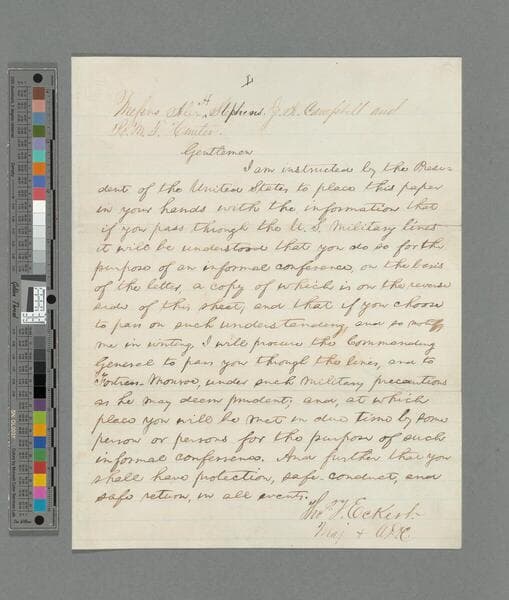 I
Messrs Alex H. Stephens, J. A. Campbell and
R. M. T. Hunter.
Gentlemen
I am instructed by the Presi-
dent of the United States to place this paper
in your hands with the information that
if you pass through the U. S. Military lines
it will be understood that you do so for the
purpose of an informal conference, on the basis
of the letter, a copy of which is on the reverse
side of this sheet, and that if you choose
to pass on such understanding, and so notify
me in writing, I will procure the Commanding
General to pass you through the lines, and to
Fortress Monroe, under such Military precautions
as he may deem prudent; and, at which
place you will be met in due time by some
person or persons for the purpose of such
informal conference. And further that you
shall have protection, safe conduct, and
safe return, in all events.
Tho. T. Eckert
Maj & ADC